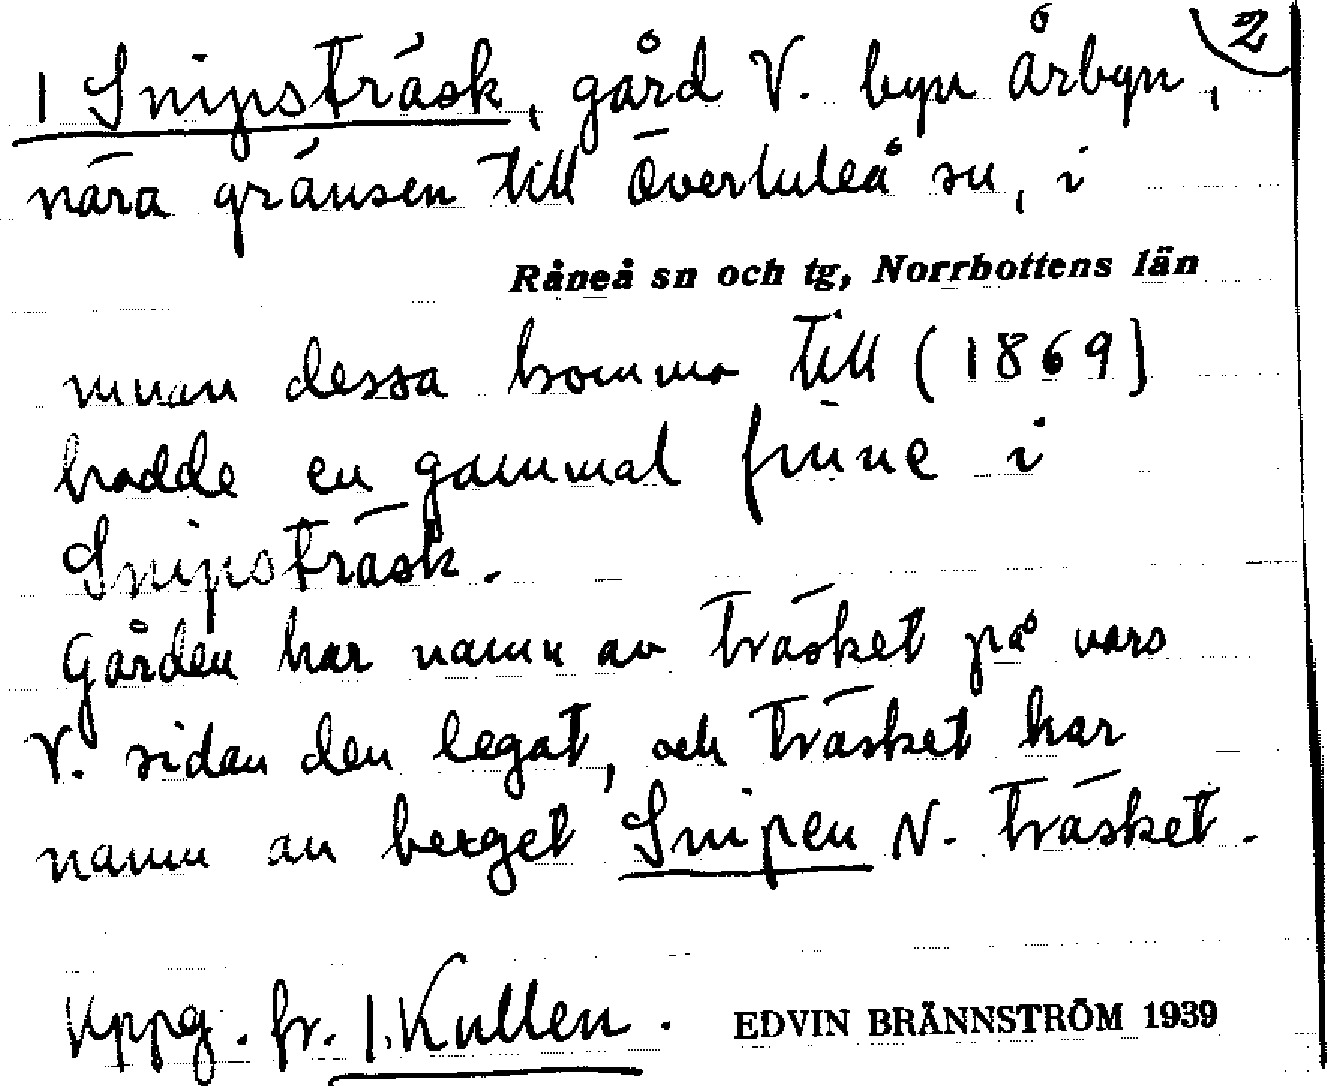 2
1 Snipsträsk, gård V. byn Årbyn,
nära gränsen till Överluleå sn, i
Råneå sn och tg, Norrbottens län
innan dessa komma till (1869)
hadde en gammal finne i
Snipsträsk.
Gården har namn av träsket på vars
V. sidan den legat, och träsket har
namn av berget Snipen N. träsket.
Uppg. fr. I. Kullen.
EDVIN BRÄNNSTRÖM 1939